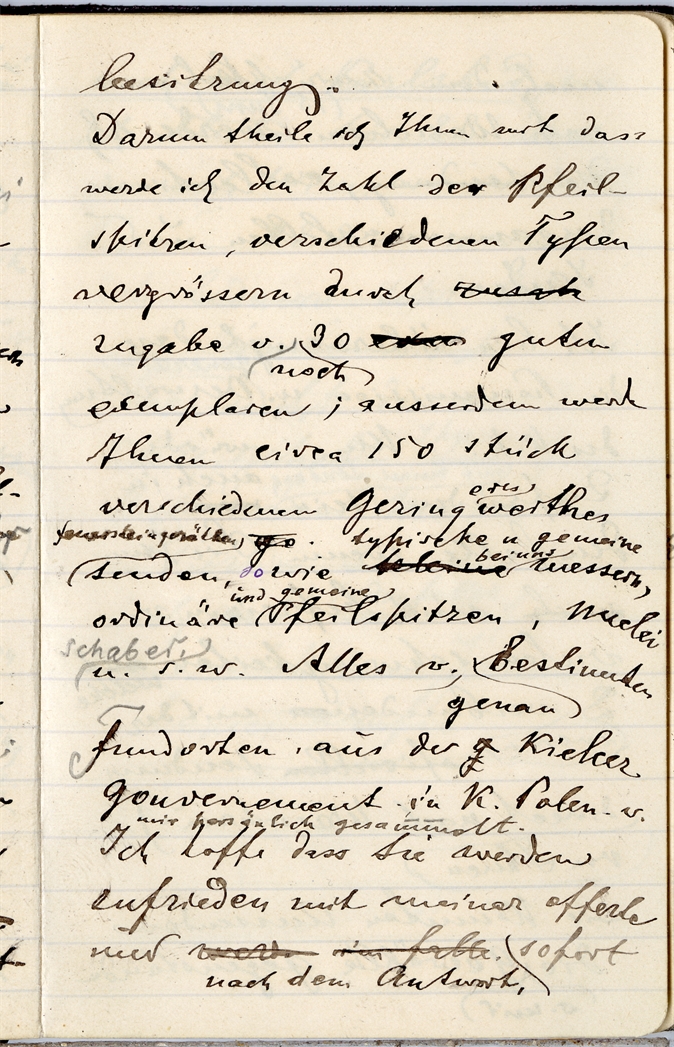 besitzung.
Darum theile ich Ihnen mit dass
werde ich den Zahl der Pfeil-
spitzen, verschiedenen Typen
vergrössern durch zusatz
zugabe v. 30 guten
noch
exemplaren; ausserdem werde
Ihnen circa 150 stück
eres
verschiedenen Geringwerthes
feuersteingeräthen, ge. typische u gemeine
senden, so wie kleine messern,
und gemeine
ordinäre Pfeilspitzen, Nuclei
schaber.
u. s. w. Alles v. Bestimmten
genau
fundorten, aus der Kielcer
Gouvernement in K. Polen. v.
mir persönlich gesammelt.
Ich hoffe dass Sie werden
zufrieden mit meiner offerte
und werde im falle. sofort
nach dem Antwort,